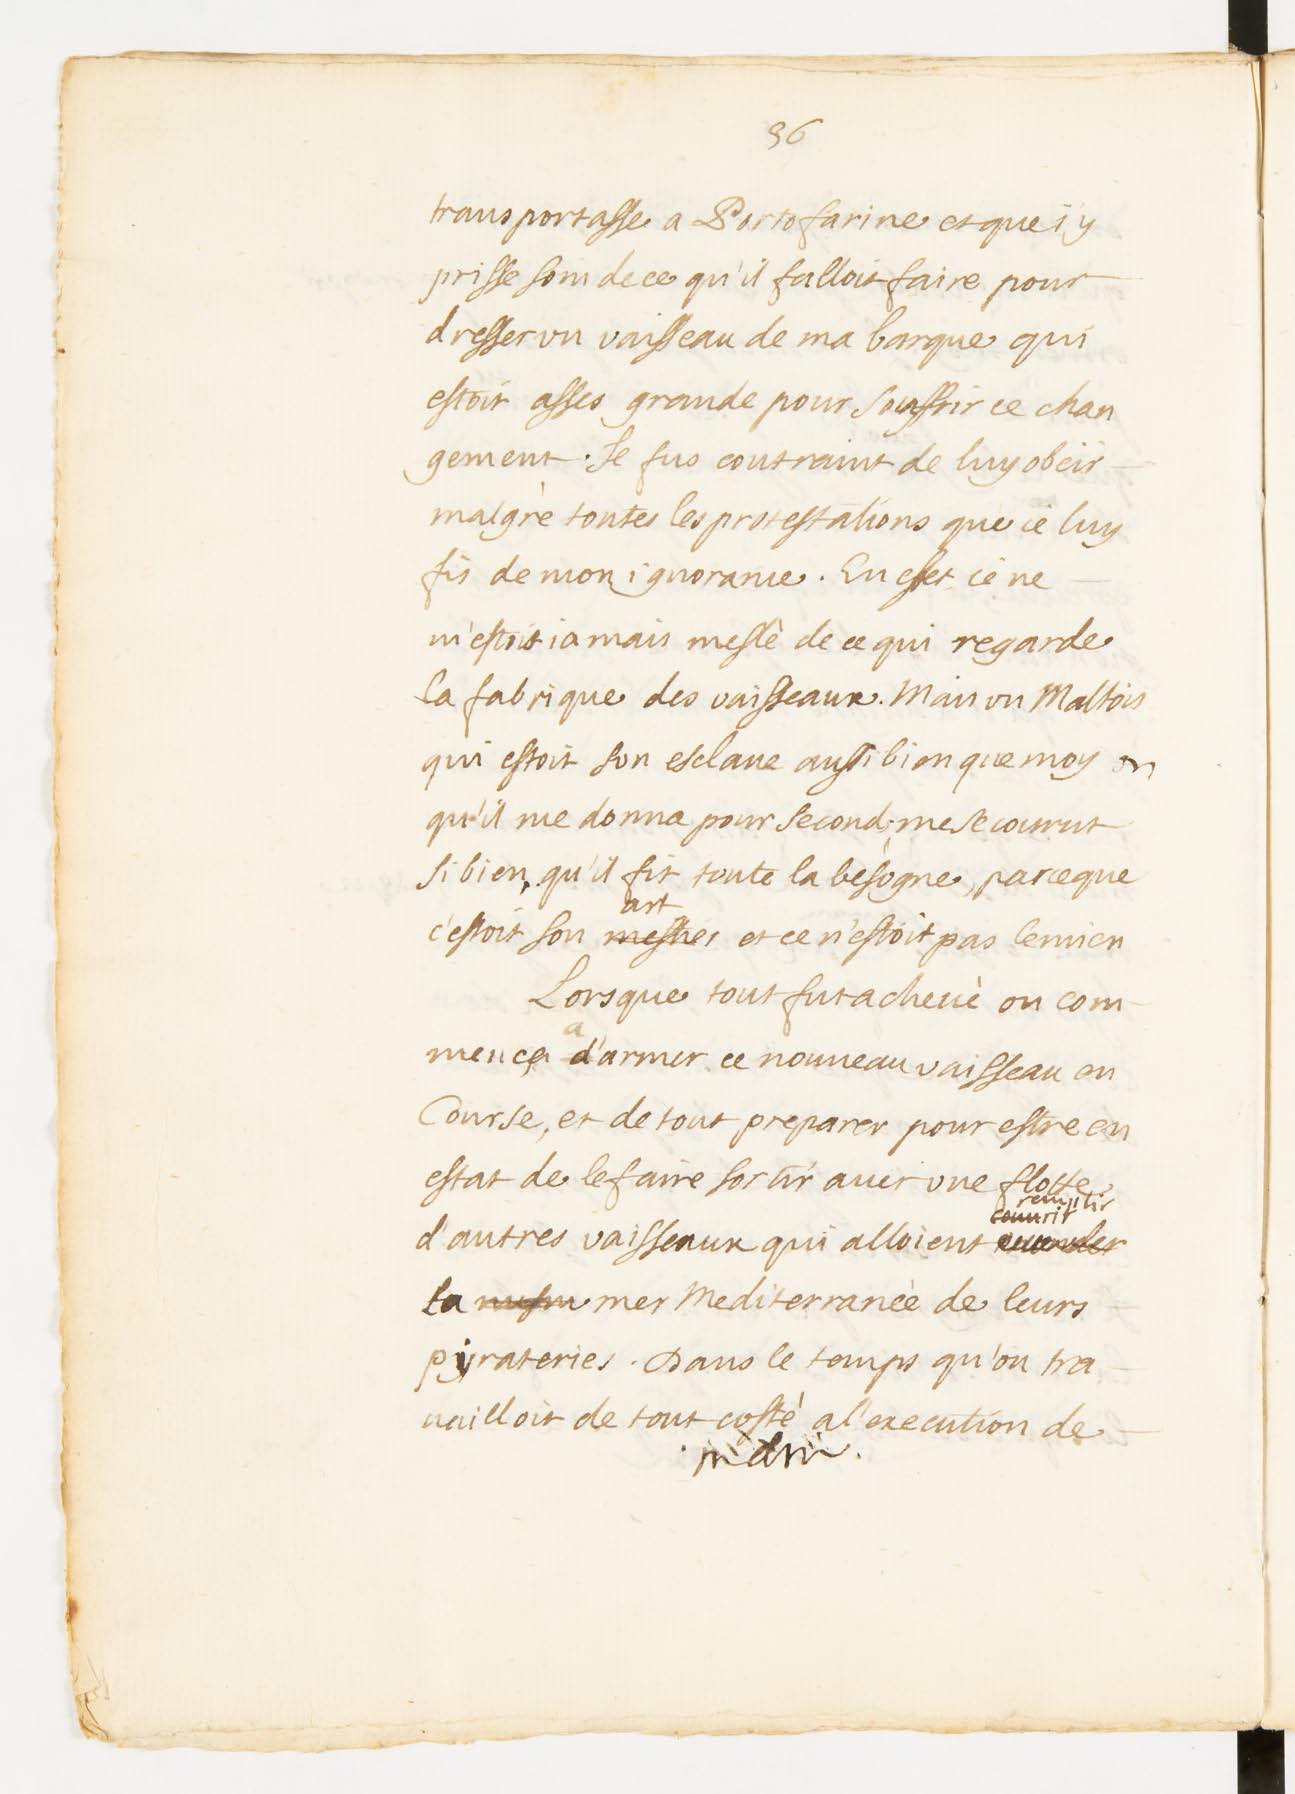 36
transportasse a Portofarine et que i'y
prisse soin de ce qu'il falloit faire pour
dresser vn vaisseau de ma barque qui
estoit asses grande pour souffrir ce chan
gement. Je fus contraint de luy obeir
malgrè toutes les protestations que ie luy
fis de mon ignorance. En effet ie ne
m'estois iamais meslè de ce qui regarde
la fabrique des vaisseaux. Mais vn Maltois
qui estoit son esclaue aussi bien que moy
qu'il me donna pour second, me secourut
si bien, qu'il fit toute la besogne, parceque
art
c'estoit son mestier et ce n'estoit pas le mien
Lorsque tout fut acheuè on com-
a
mença d'armer ce nouueau vaisseau en
Course, et de tout preparer pour estre en
estat de le faire sortir auec vne flotte
remplir
couurir
d'autres vaisseaux qui alloient
la mer Mediterranèe de leurs
pyrateries. Dans le temps qu'on tra-
uailloit de tout costè a l'execution de